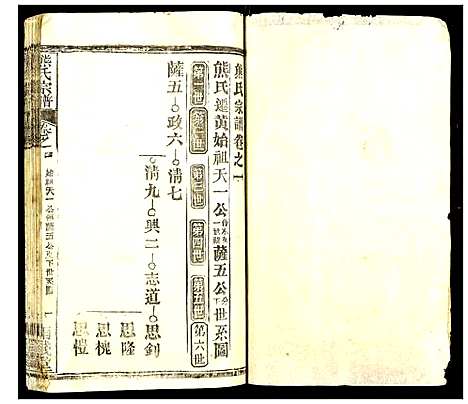 熊氏宗譜卷之一
熊氏遷黃始祖天一公薩五公世系圖
第一世 第二世 第三世 第四世 第五世 第六世
薩五 政六 清七
清九 興二 志道 思釗
思隆
思桃
思愷
熊氏宗譜
始祖天一公薩五公以下世系圖